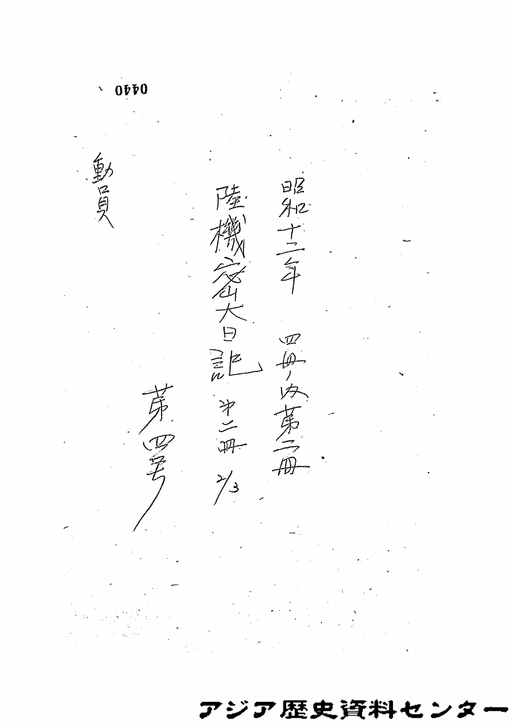 0440
昭和十二年 四冊ノ内第二冊
陸機密大日記 第二冊 2/3
第四号
動員
アジア歴史資料センター